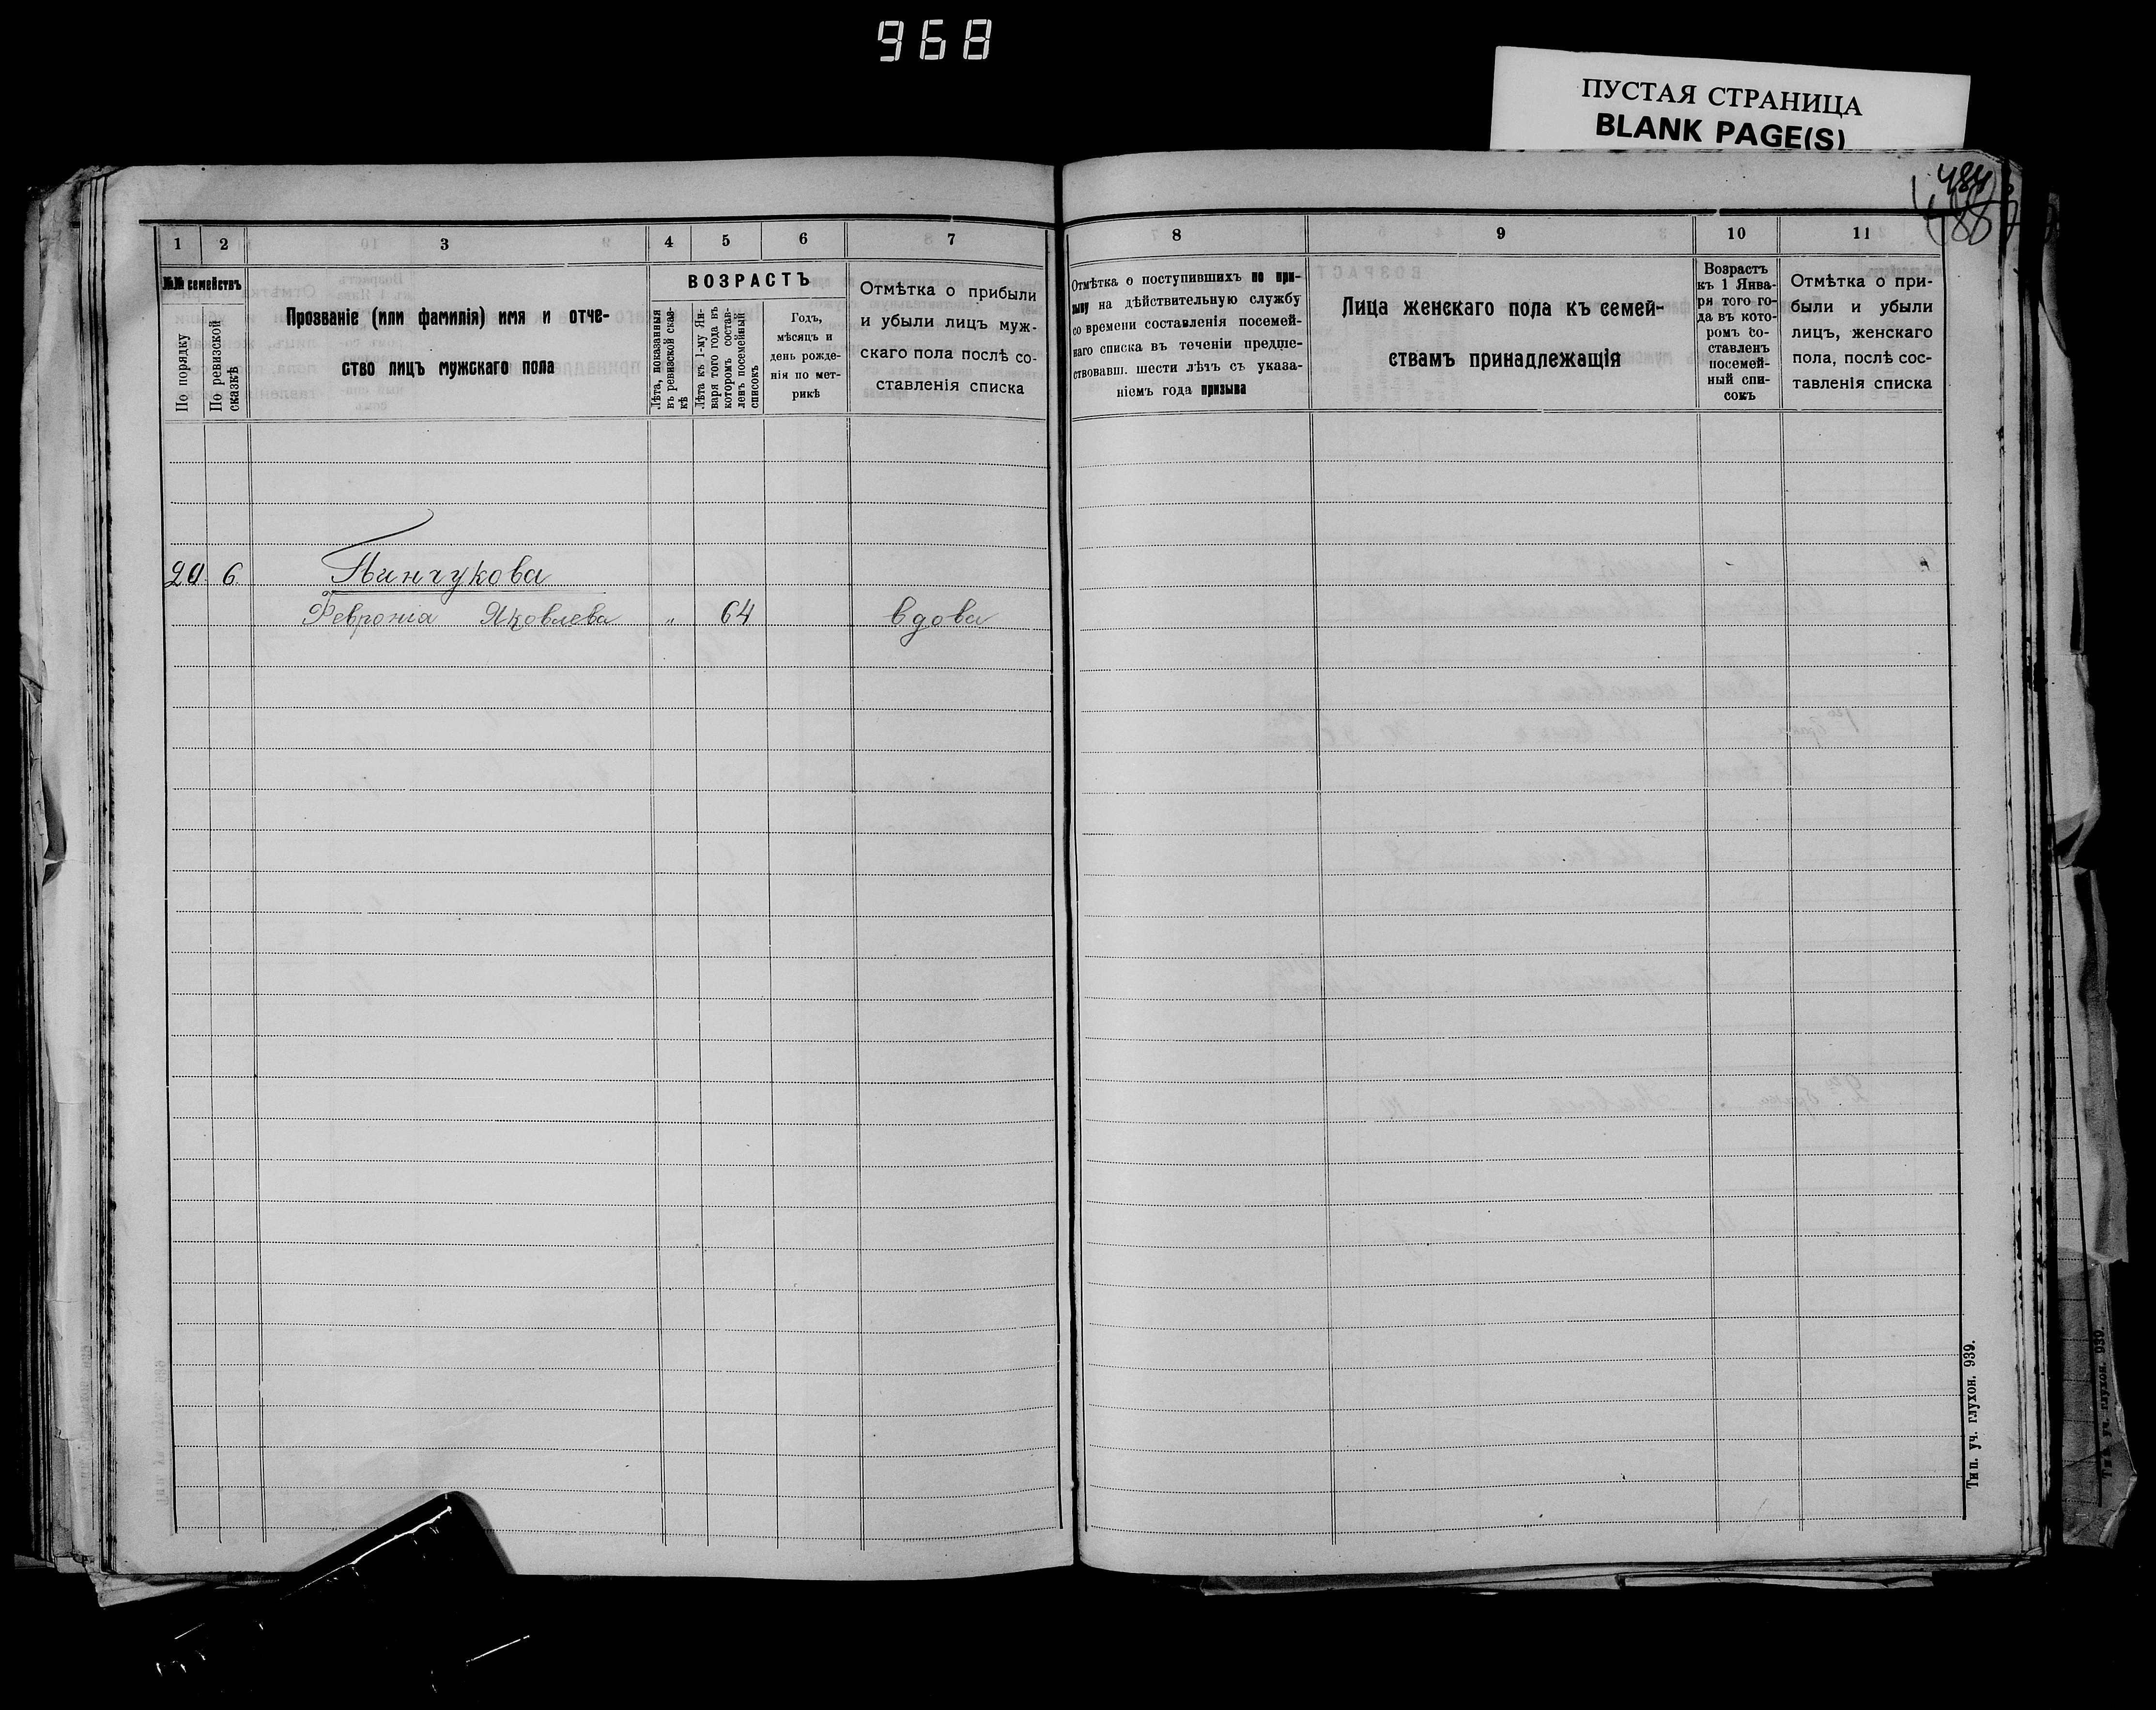 968
ПУСТАЯ СТРАНИЦА
BLANK PAGE(S)
484
1 2 3 4 5 6 7
№№ семействъ
По порядку
По ревизской сказкѣ
Прозваніе (или фамилія) имя и отче-
ство лицъ мужскаго пола
ВОЗРАСТЪ
Лѣта, показанныя
въ ревизской сказ-
кѣ
Лѣта къ 1-му Ян-
варя того года въ
которомъ состав-
ленъ посемейный
списокъ
Годъ,
мѣсяцъ и
день рожде-
нія по мет-
рикѣ
Отмѣтка о прибыли
и убыли лицъ муж-
скаго пола послѣ со-
ставленія списка
20. 6. Пинчукова
Февронія Яковлева „ 64 вдова
8 9 10 11
Отмѣтка о поступившихъ по при-
зыву на дѣйствительную службу
со времени составленія посемей-
наго списка въ теченіи предше-
ствовавш. шести лѣтъ съ указа-
ніемъ года призыва
Лица женскаго пола къ семей-
ствамъ принадлежащія
Возрастъ
къ 1 Янва-
ря того го-
да въ кото-
ромъ со-
ставленъ
посемей-
ный спи-
сокъ
Отмѣтка о при-
были и убыли
лицъ, женскаго
пола, послѣ сос-
тавленія списка
Тип. уч. глухон. 939.
Тип. уч. глухон. 939.